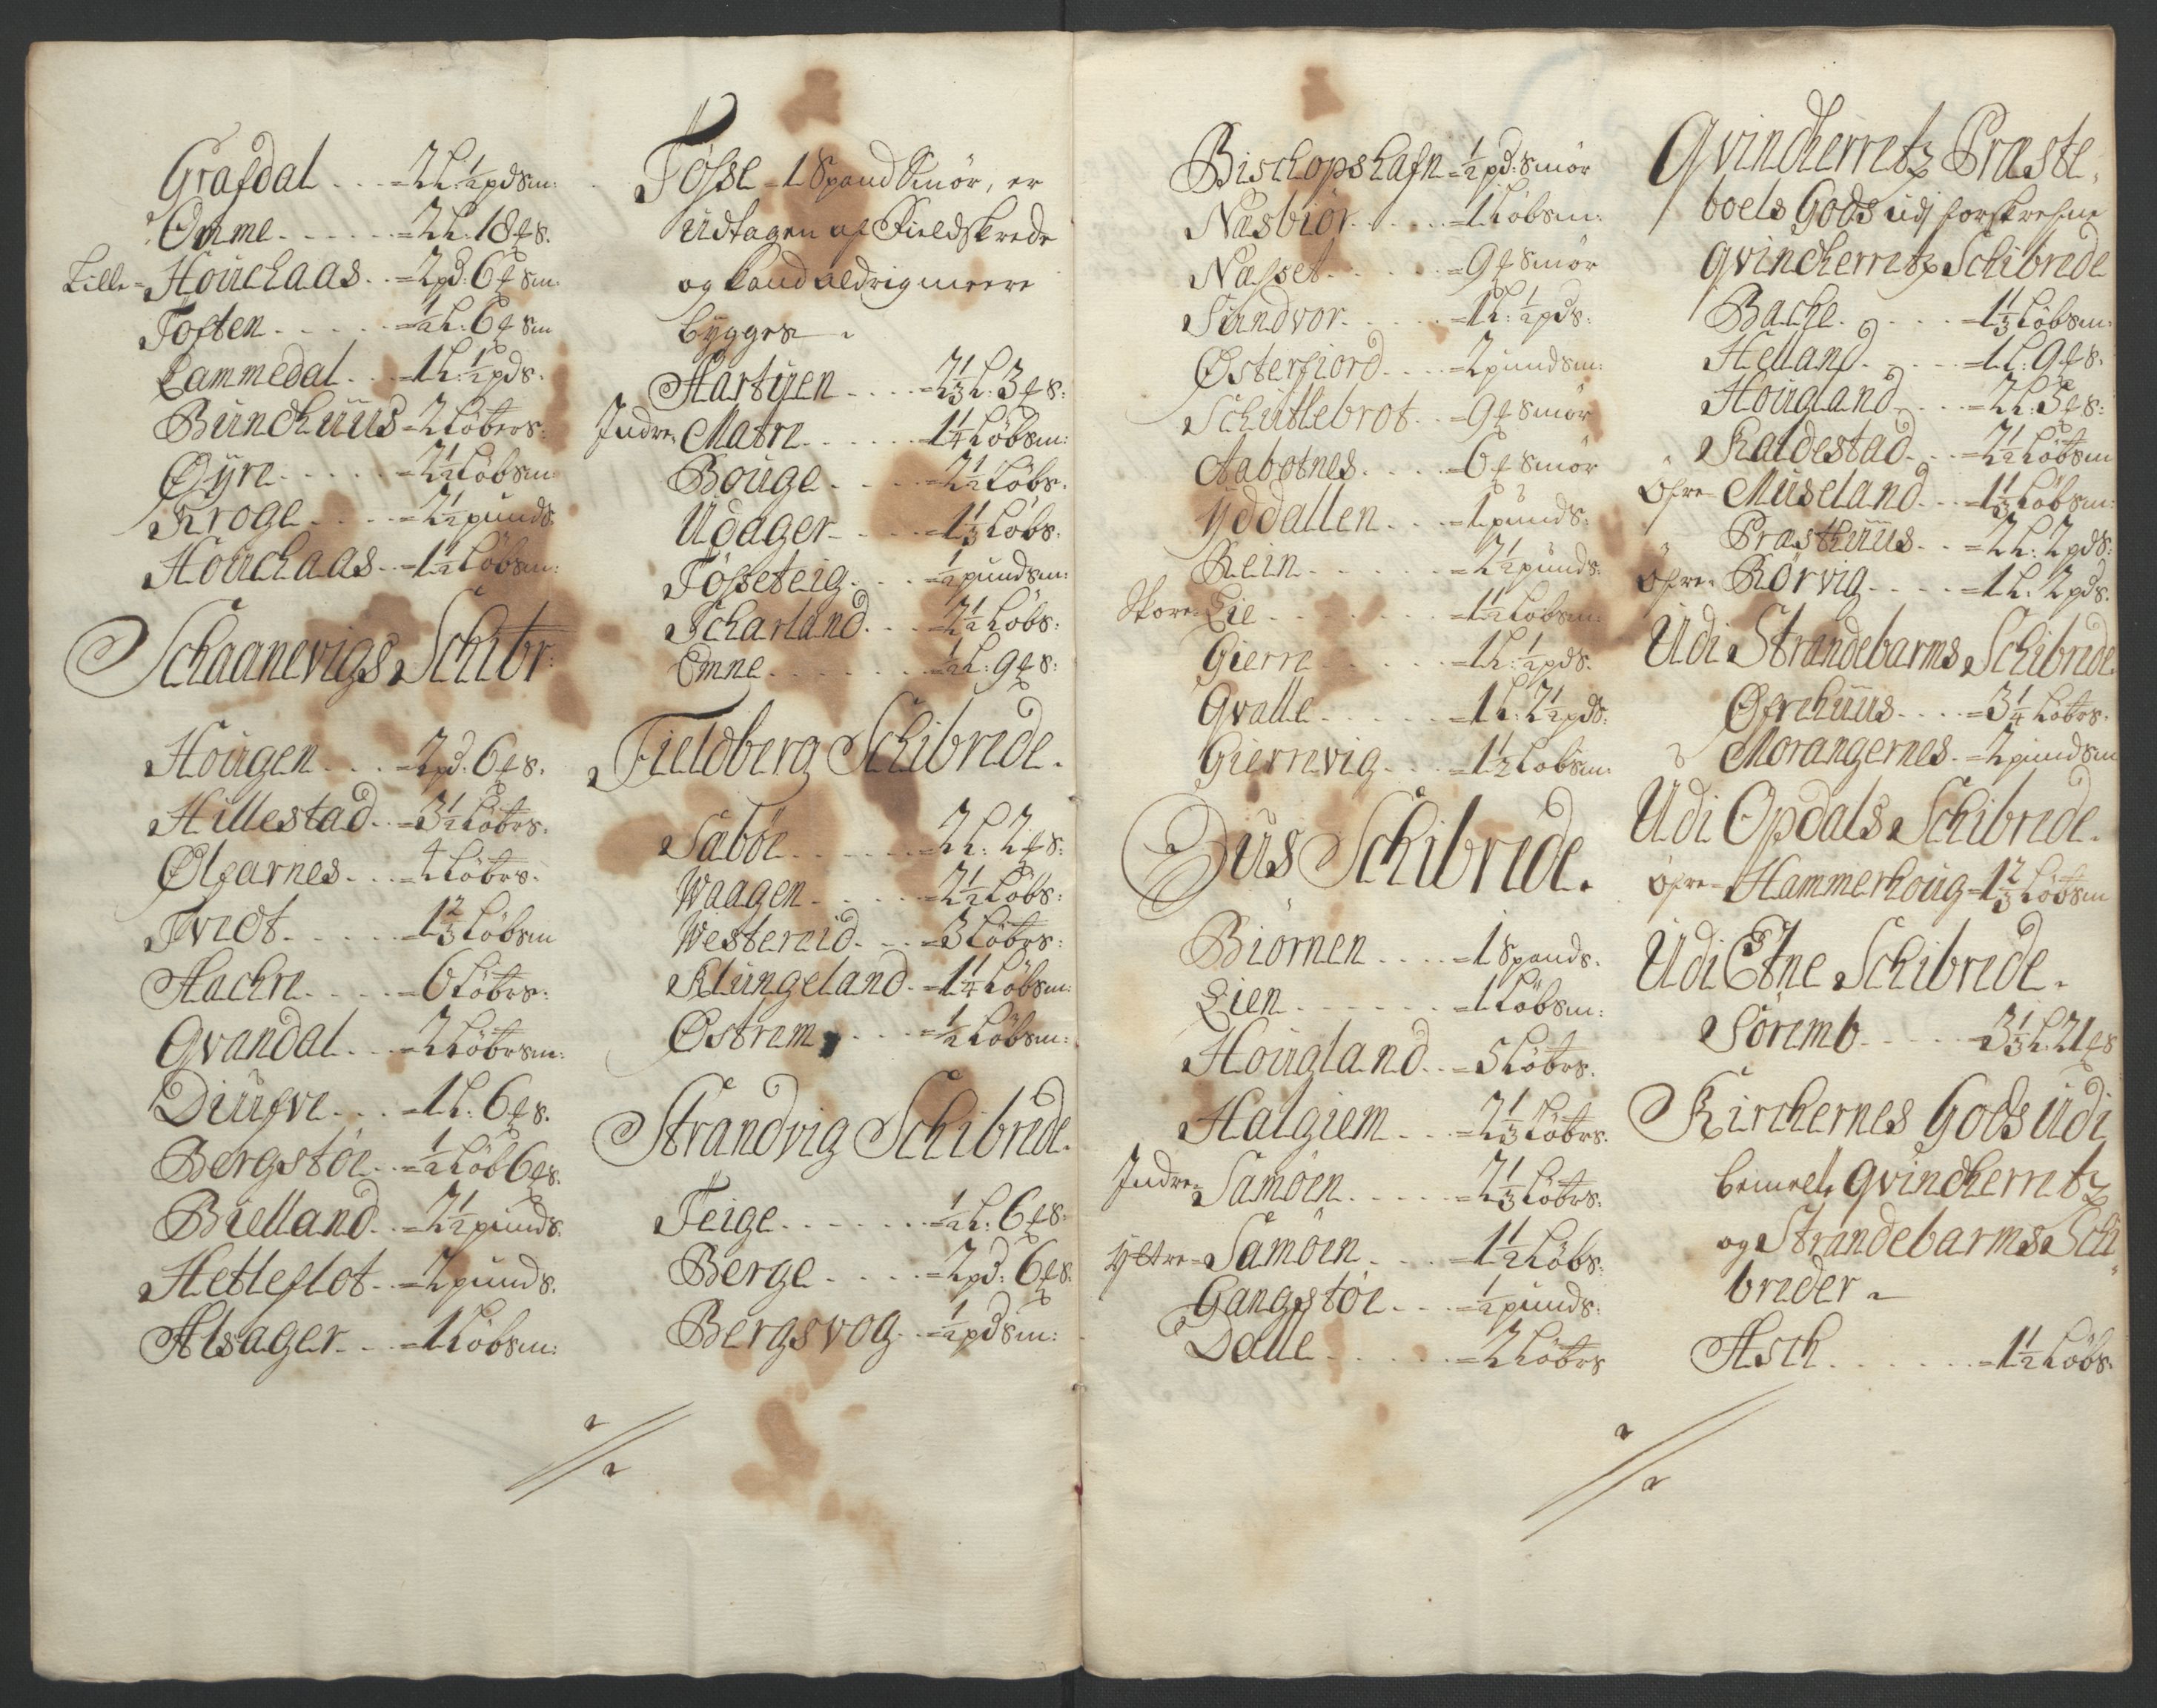 Grafdal . . . = 2 L: ½ pd sm:
Omme . . . . . = 2 L: 18 ℔ s.
Lille = Houchaas . . = 2 pd: 6 ℔ sm:
Toften . . . . . = ½ L: 6 ℔ sm
Lammedal . . = 1 L: ½ pd s.
Bundhuus = 2 Löbers:
Øyre . . . . . = 2½ Löbsm:
Kroge . . . . = 2½ punds
Houchaas . . = 1½ Löbsm:
Schaanevigs Schibr:
Hougen . . . = 2 pd: 6 ℔ s.
Hillestad . . = 3½ Löbrs.
Ølfarnes . . . = 4 Löbrs.
Tvedt . . . . . 1⅔ Löbsm
Aachre . . . . = 6 Löbrs:
Qvandal . . . = 2 Löbrsm:
Diufve . . . = 1 L: 6 ℔ s.
Bergstöe . . = ½ Löb 6 ℔ s.
Bielland . . = 2½ punds.
Hetleflot . . = 2 punds.
Alsager . . . = 1 Löbsm:
Fosse = 1 Spand Smör, er
udtagen af Fieldskrede
og kand aldrig meere
bygges .
Hartuen . . . . = 2⅓ L: 3 ℔ s:
Indre = Matre . . . . . . 1¼ Löbsm:
Bouge . . . . . = 2½ Löbs.
Udager . . . . = 1⅓ Löbs.
Fosseteig . . . = ½ pundsm:
Scharland . . . = 2½ Löbs:
Emne . . . . . . . = ½ L: 9 ℔ s:
Fieldberg Schibrede.
Saboe . . . . . . = 2 L: 2 ℔ s:
Waagen . . . . . = 2½ Löbs:
Westereid . . . = 3 Löbrs:
Klungeland . = 1¼ Löbsm:
Østrem . . . . = ½ Löbsm:
Strandvig Schibrede.
Teige . . . . . . . = ½ L: 6 ℔ s.
Berge . . . . . = 2 pd: 6 ℔ s.
Bergsvog . . = ½ pd sm:
Bischopshafn = ½ pd: smör
Næsbiör . . . . . = 1 Löbsm:
Næsset . . . . . . = 9 ℔ smör
Sundvor . . . . . = 1 L: ½ pd s:
Østerfiord . . . . = 2 pundsm:
Schutlebrot . . = 9 ℔ smör
Aabotnes . . . . = 6 ℔ smör
Yddallen . . . = 1 punds:
Rein . . . . . . . = 2½ punds:
Skore = Lie . . . . . . . . = 1½ Löbsm:
Gierre . . . . . . = 1 L: ½ pd s.
Qvalle . . . . . = 1 L: 2½ pd s:
Gierrevig . . . = 1½ Löbsm:
Øus Schibrede.
Biörnen . . . . = 1 Spands.
Lien . . . . . . . = 1 Löbsm:
Hougland . . = 5 Löbrs.
Halgiem . . . = 2⅓ Löbrs:
Indre = Samöen . . . . . = 2⅓ Löbrs:
Yttre = Samöen . . . = 1½ Löbs:
Gangstöe . . . = ½ punds:
Dalle . . . . . . = 2 Löbrs
Qvindherretz Præste,
boels Gods udj forskrefne
Qvindherretz Schibrede
Bache . . . . . = 1⅓ Löbsm:
Helland . . . . = 1 L: 9 ℔ s.
Hougland . . . = 2 L: 3 ℔ s:
Kaldestad . . = 2½ Löbsm
Öfre = Museland . . . = 1⅓ Löbsm:
Præsthuus . . = 2 L: 2 pd s:
Öfre = Rörvig . . . . . = 1 L: 2 pd s.
Udi Strandebarms Schibrede
Øfrehuus . . . . = 3¼ Löbrs.
Morangernes . = 2 pundsm
Udi Opdals Schibrede.
Öfre = Hammerhoug = 1⅔ Löbsm
Udi Etne Schibrede.
Söremb . . . . . 3⅓ L: 21 ℔ s
Kirchernes Gods Udi
bemelte Qvindherretz
og Strandebarms Schi
breder .
Asch . . . . . . . = 1½ Löbs.